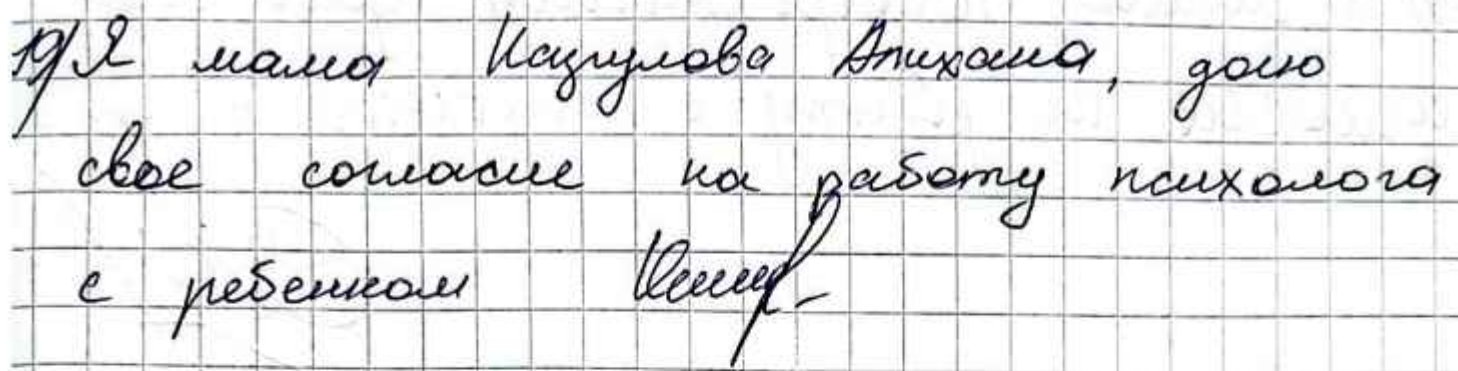 19) Я мама Казгулова Алихана, даю
свое согласие на работу психолога
с ребенком